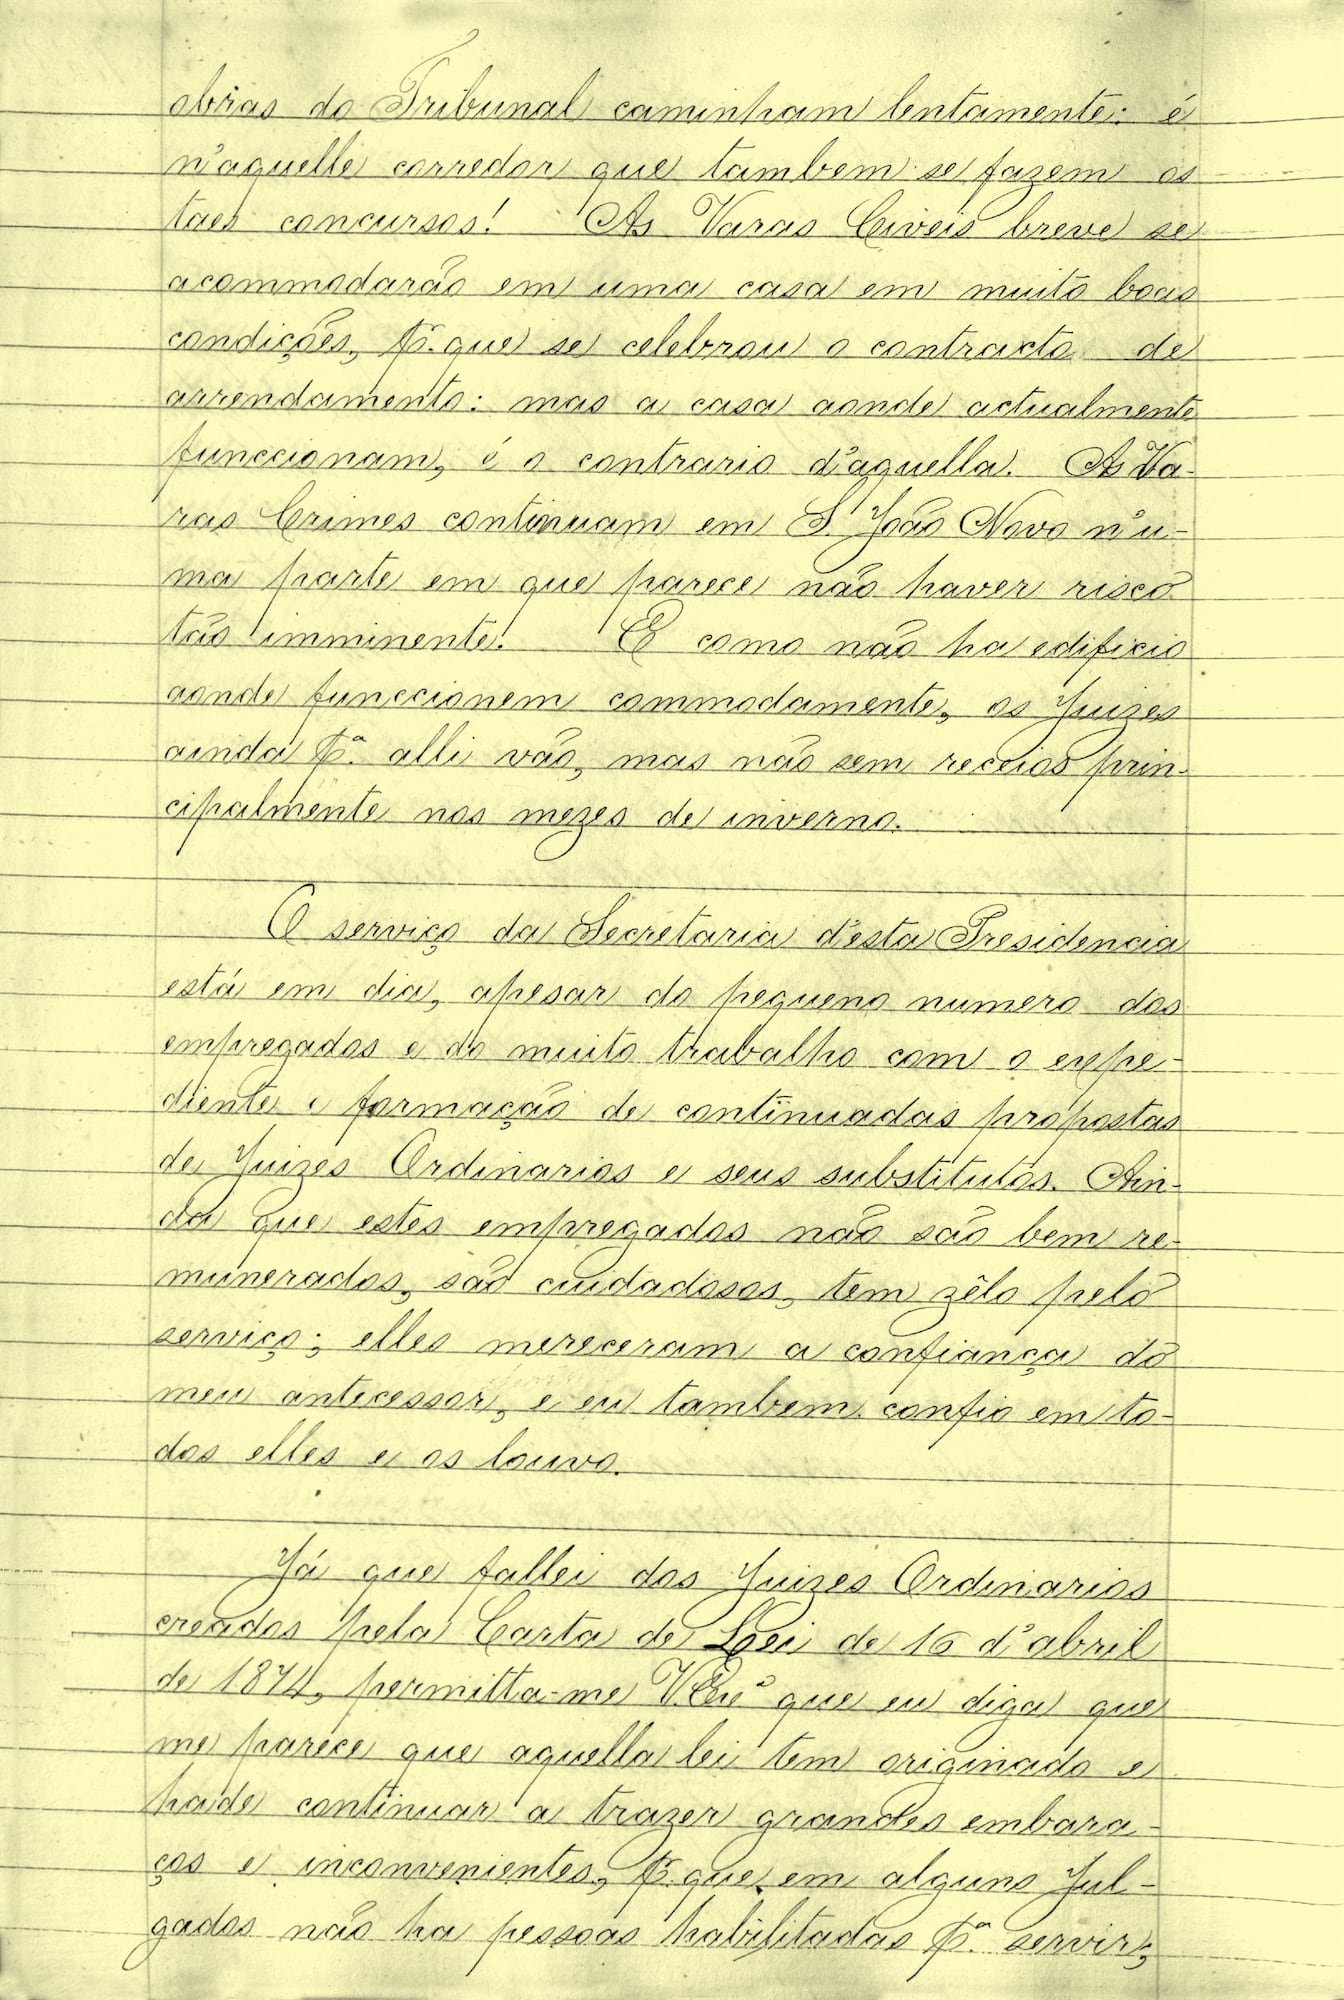 obras do Tribunal caminham lentamente: é
n'aquelle corredor que tambem se fazem os
taes concursos! As Varas Civeis breve se
acommodarão em uma casa em muito boas
condições, p.r que se celebrou o contracto de
arrendamento: mas a casa aonde actualmente
funccionam, é o contrario d'aquella. As Va-
ras Crimes continuam em S. João Novo n'u-
ma parte em que parece não haver risco
tão imminente! E como não ha edificio
aonde funccionem commodamente, os Juizes
ainda p.ª alli vão, mas não sem receios prin-
cipalmente nos mezes de inverno.
O serviço da Secretaria d'esta Presidencia
está em dia, apesar do pequeno numero dos
empregados e do muito trabalho com o expe-
diente e formação de continuadas propostas
de Juizes Ordinarios e seus substitutos. Ain-
da que estes empregados não são bem re-
munerados, são cuidadosos, tem zêlo pelo
serviço; elles mereceram a confiança do
meu antecessor, e eu tambem confio em to-
dos elles e os louvo.
Já que fallei dos Juizes Ordinarios
creados pela Carta de Lei de 16 d'abril
de 1874, permitta-me V. Ex.ª que eu diga que
me parece que aquella lei tem originado e
hade continuar a trazer grandes embara-
ços e inconvenientes, p.r que em alguns Jul-
gados não ha pessoas habilitadas p.ª servir;